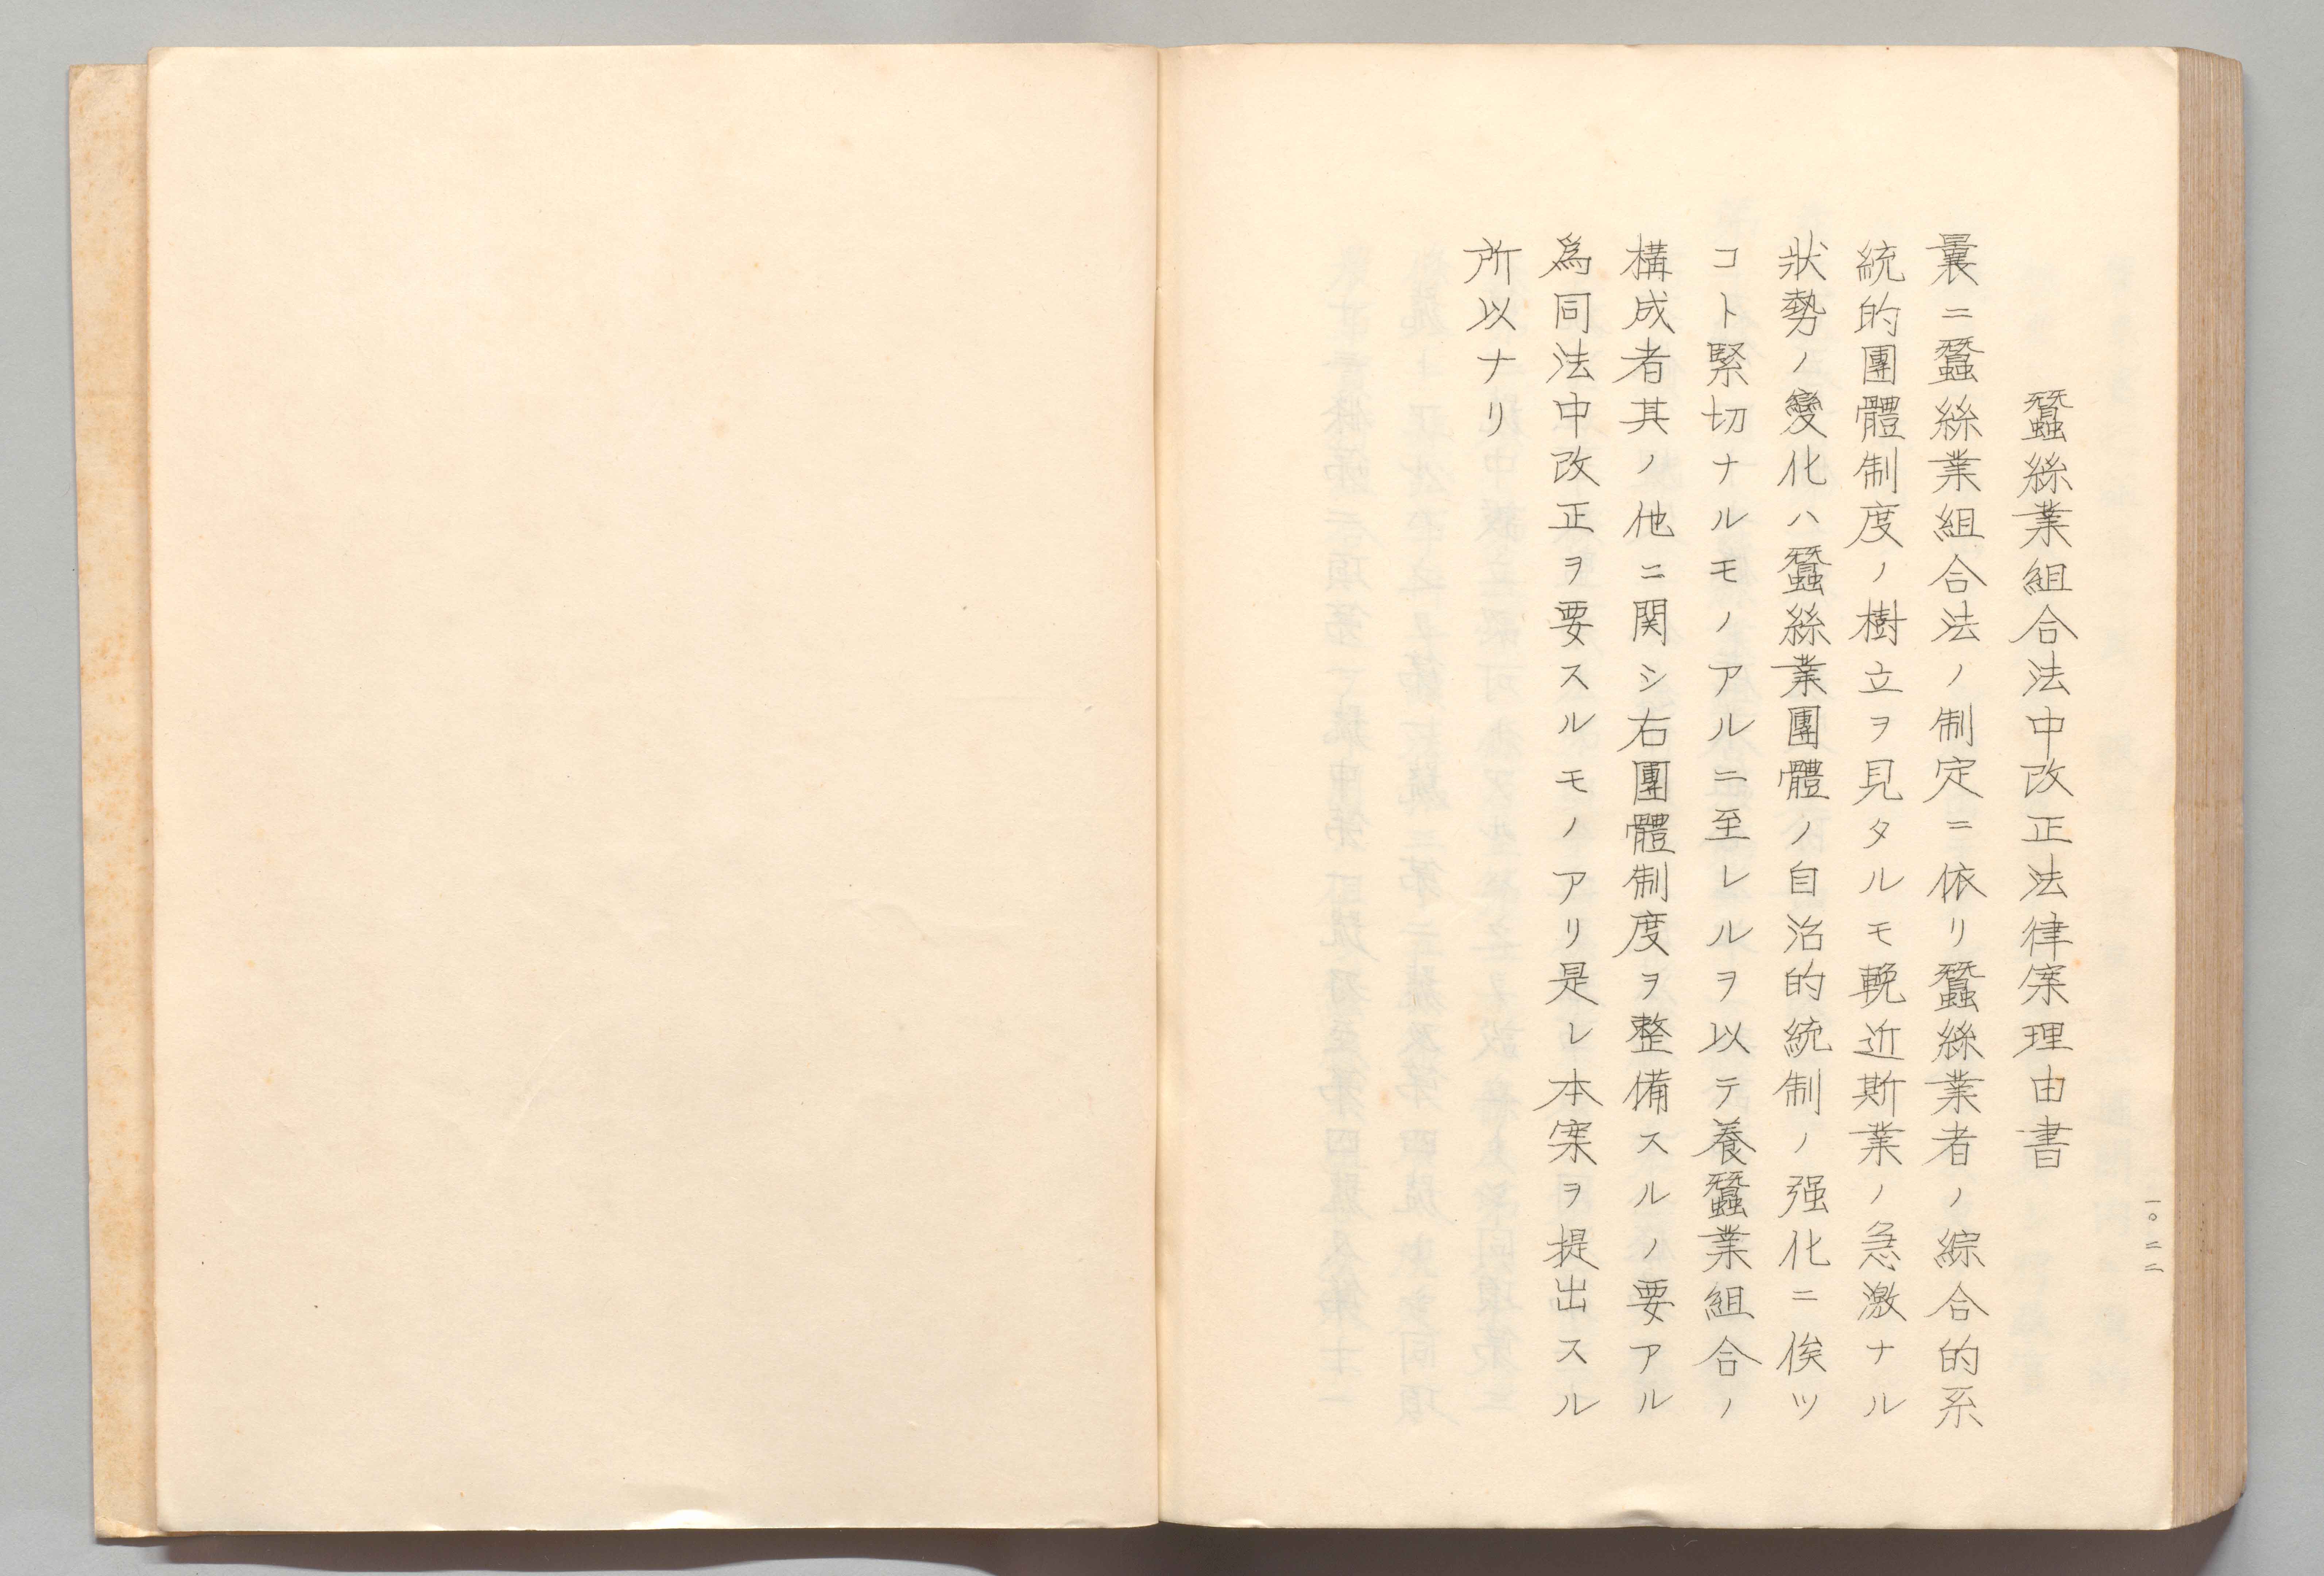 蠶絲業組合法中改正法律案理由書
曩ニ蠶絲業組合法ノ制定ニ依リ蠶絲業者ノ綜合的系
統的團體制度ノ樹立ヲ見タルモ輓近斯業ノ急激ナル
狀勢ノ變化ハ蠶絲業團體ノ自治的統制ノ强化ニ俟ツ
コト緊切ナルモノアルニ至レルヲ以テ養蠶業組合ノ
構成者其ノ他ニ関シ右團體制度ヲ整備スルノ要アル
爲同法中改正ヲ要スルモノアリ是レ本案ヲ提出スル
所以ナリ
一〇、二二